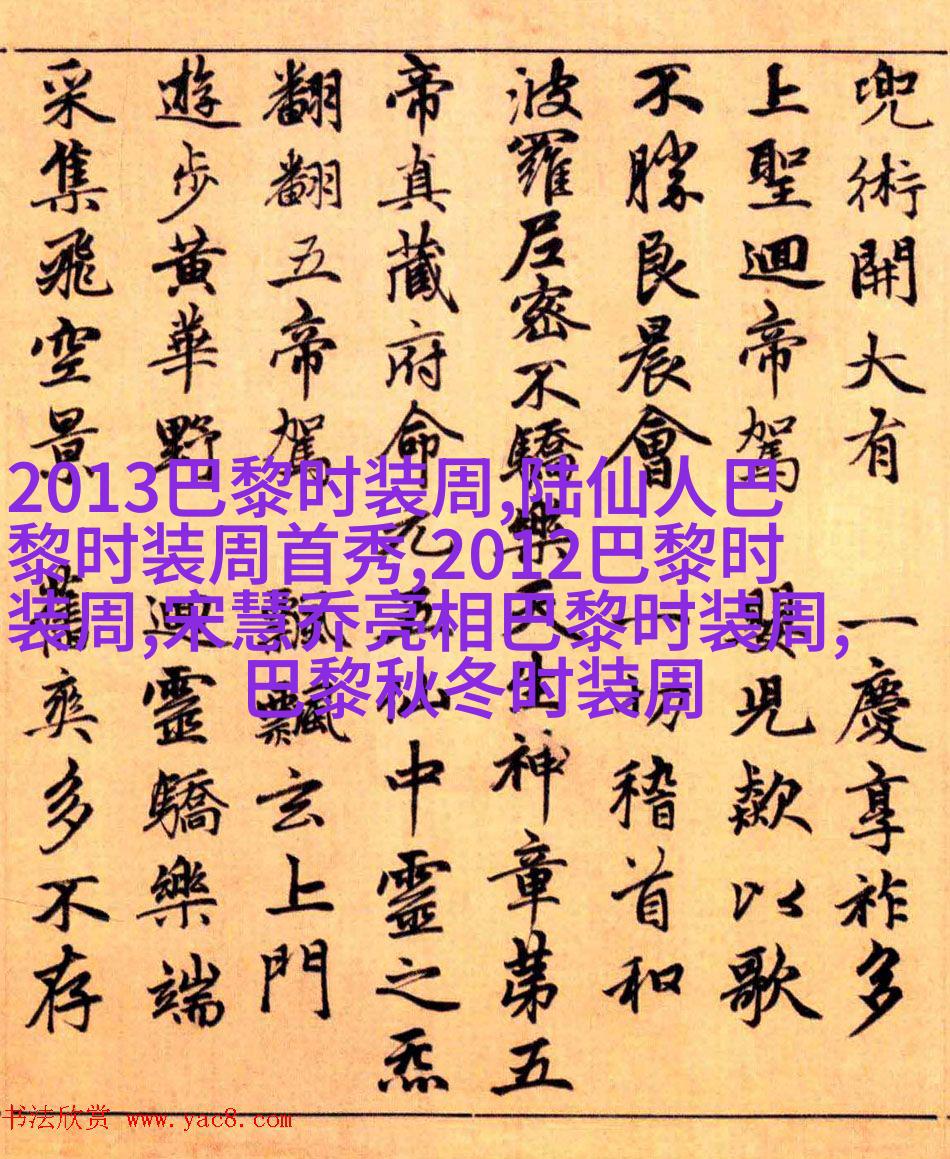 兜術開大有 一慶享祚多
上聖迴帝駕 兒歎以歌
不勝良晨會 一切稽首和
波羅尼密不驕樂天生神章第五
帝真藏府命元 仙中靈之炁
翻翻五帝駕 飄飄玄上門
遊步黃華野 迴靈驕樂端
采集飛空景 舊爽多不存
2013巴黎时装周,陆仙人巴
黎时装周首秀,2012巴黎时
装周,宋慧乔亮相巴黎时装周,
巴黎秋冬时装周
书法欣赏 www.yac8.com